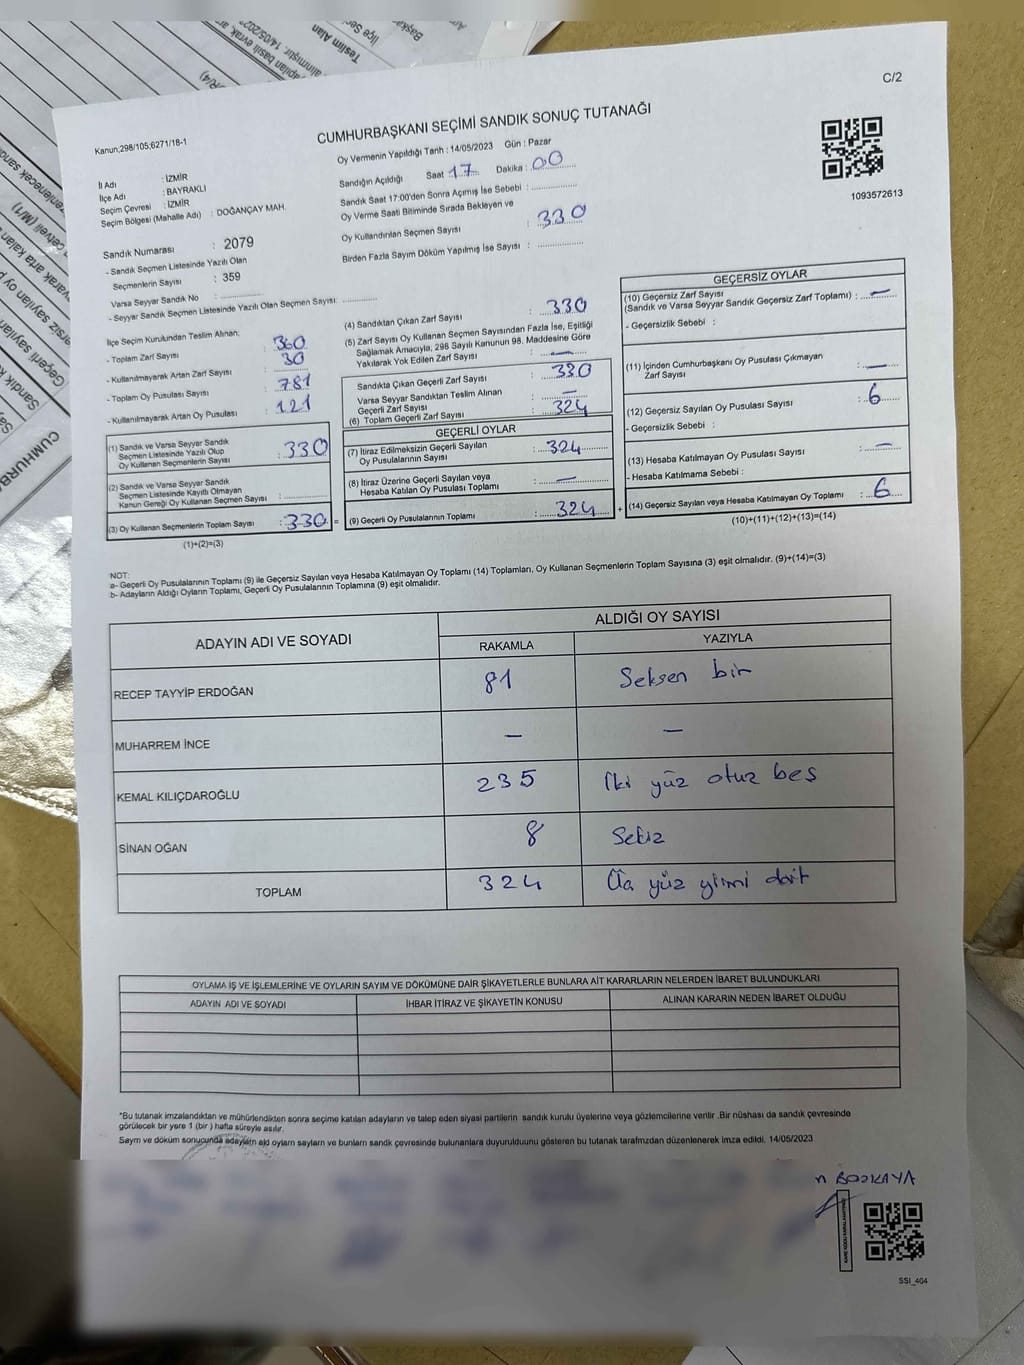 C/2
CUMHURBAŞKANI SEÇİMİ SANDIK SONUÇ TUTANAĞI
Kanun;298/105;6271/18-1
Oy Vermenin Yapıldığı Tarih : 14/05/2023 Gün : Pazar
Sandığın Açıldığı Saat 17 Dakika : 00
Sandık Saat 17:00'den Sonra Açımış İse Sebebi :
Oy Verme Saati Bitiminde Sırada Bekleyen ve
Oy Kullandırılan Seçmen Sayısı : 330
Birden Fazla Sayım Döküm Yapılmış İse Sayısı :
1093572613
İl Adı : İZMİR
İlçe Adı : BAYRAKLI
Seçim Çevresi : İZMİR
Seçim Bölgesi (Mahalle Adı) : DOĞANÇAY MAH.
Sandık Numarası : 2079
- Sandık Seçmen Listesinde Yazılı Olan
Seçmenlerin Sayısı : 359
Varsa Seyyar Sandık No :
- Seyyar Sandık Seçmen Listesinde Yazılı Olan Seçmen Sayısı:
İlçe Seçim Kurulundan Teslim Alınan;
- Toplam Zarf Sayısı : 360
- Kullanılmayarak Artan Zarf Sayısı : 30
- Toplam Oy Pusulası Sayısı : 781
- Kullanılmayarak Artan Oy Pusulası : 121
(1) Sandık ve Varsa Seyyar Sandık
Seçmen Listesinde Yazılı Olup
Oy Kullanan Seçmenlerin Sayısı : 330
(2) Sandık ve Varsa Seyyar Sandık
Seçmen Listesinde Kayıtlı Olmayan
Kanun Gereği Oy Kullanan Seçmen Sayısı :
(3) Oy Kullanan Seçmenlerin Toplam Sayısı : 330 =
(1)+(2)=(3)
(4) Sandıktan Çıkan Zarf Sayısı : 330
(5) Zarf Sayısı Oy Kullanan Seçmen Sayısından Fazla İse, Eşitliği
Sağlamak Amacıyla; 298 Sayılı Kanunun 98. Maddesine Göre
Yakılarak Yok Edilen Zarf Sayısı : —
Sandıkta Çıkan Geçerli Zarf Sayısı : 330
Varsa Seyyar Sandıktan Teslim Alınan
Geçerli Zarf Sayısı : —
(6) Toplam Geçerli Zarf Sayısı : 324
GEÇERLİ OYLAR
(7) İtiraz Edilmeksizin Geçerli Sayılan
Oy Pusulalarının Sayısı : 324
(8) İtiraz Üzerine Geçerli Sayılan veya
Hesaba Katılan Oy Pusulası Toplamı : —
(9) Geçerli Oy Pusulalarının Toplamı : 324 +
GEÇERSİZ OYLAR
(10) Geçersiz Zarf Sayısı
(Sandık ve Varsa Seyyar Sandık Geçersiz Zarf Toplamı) : —
- Geçersizlik Sebebi :
(11) İçinden Cumhurbaşkanı Oy Pusulası Çıkmayan
Zarf Sayısı : —
(12) Geçersiz Sayılan Oy Pusulası Sayısı : 6
- Geçersizlik Sebebi :
(13) Hesaba Katılmayan Oy Pusulası Sayısı : —
- Hesaba Katılmama Sebebi :
(14) Geçersiz Sayılan veya Hesaba Katılmayan Oy Toplamı : 6
(10)+(11)+(12)+(13)=(14)
NOT:
a- Geçerli Oy Pusulalarının Toplamı (9) ile Geçersiz Sayılan veya Hesaba Katılmayan Oy Toplamı (14) Toplamları, Oy Kullanan Seçmenlerin Toplam Sayısına (3) eşit olmalıdır. (9)+(14)=(3)
b- Adayların Aldığı Oyların Toplamı, Geçerli Oy Pusulalarının Toplamına (9) eşit olmalıdır.
ADAYIN ADI VE SOYADI
ALDIĞI OY SAYISI
RAKAMLA YAZIYLA
RECEP TAYYİP ERDOĞAN 81 Seksen bir
MUHARREM İNCE — —
KEMAL KILIÇDAROĞLU 235 İki yüz otuz bes
SİNAN OĞAN 8 Sekiz
TOPLAM 324 Üç yüz yirmi dört
OYLAMA İŞ VE İŞLEMLERİNE VE OYLARIN SAYIM VE DÖKÜMÜNE DAİR ŞİKAYETLERLE BUNLARA AİT KARARLARIN NELERDEN İBARET BULUNDUKLARI
ADAYIN ADI VE SOYADI İHBAR İTİRAZ VE ŞİKAYETİN KONUSU ALINAN KARARIN NEDEN İBARET OLDUĞU
*Bu tutanak imzalandıktan ve mühürlendikten sonra seçime katılan adayların ve talep eden siyasi partilerin sandık kurulu üyelerine veya gözlemcilerine verilir .Bir nüshası da sandık çevresinde
görülecek bir yere 1 (bir ) hafta süreyle asılır.
Sayım ve döküm sonucunda adayların aldığı oyların sayıları ve bunların sandık çevresinde bulunanlara duyurulduğunu gösteren bu tutanak tarafımızdan düzenlenerek imza edildi. 14/05/2023
n BOZKAYA
SSI_404